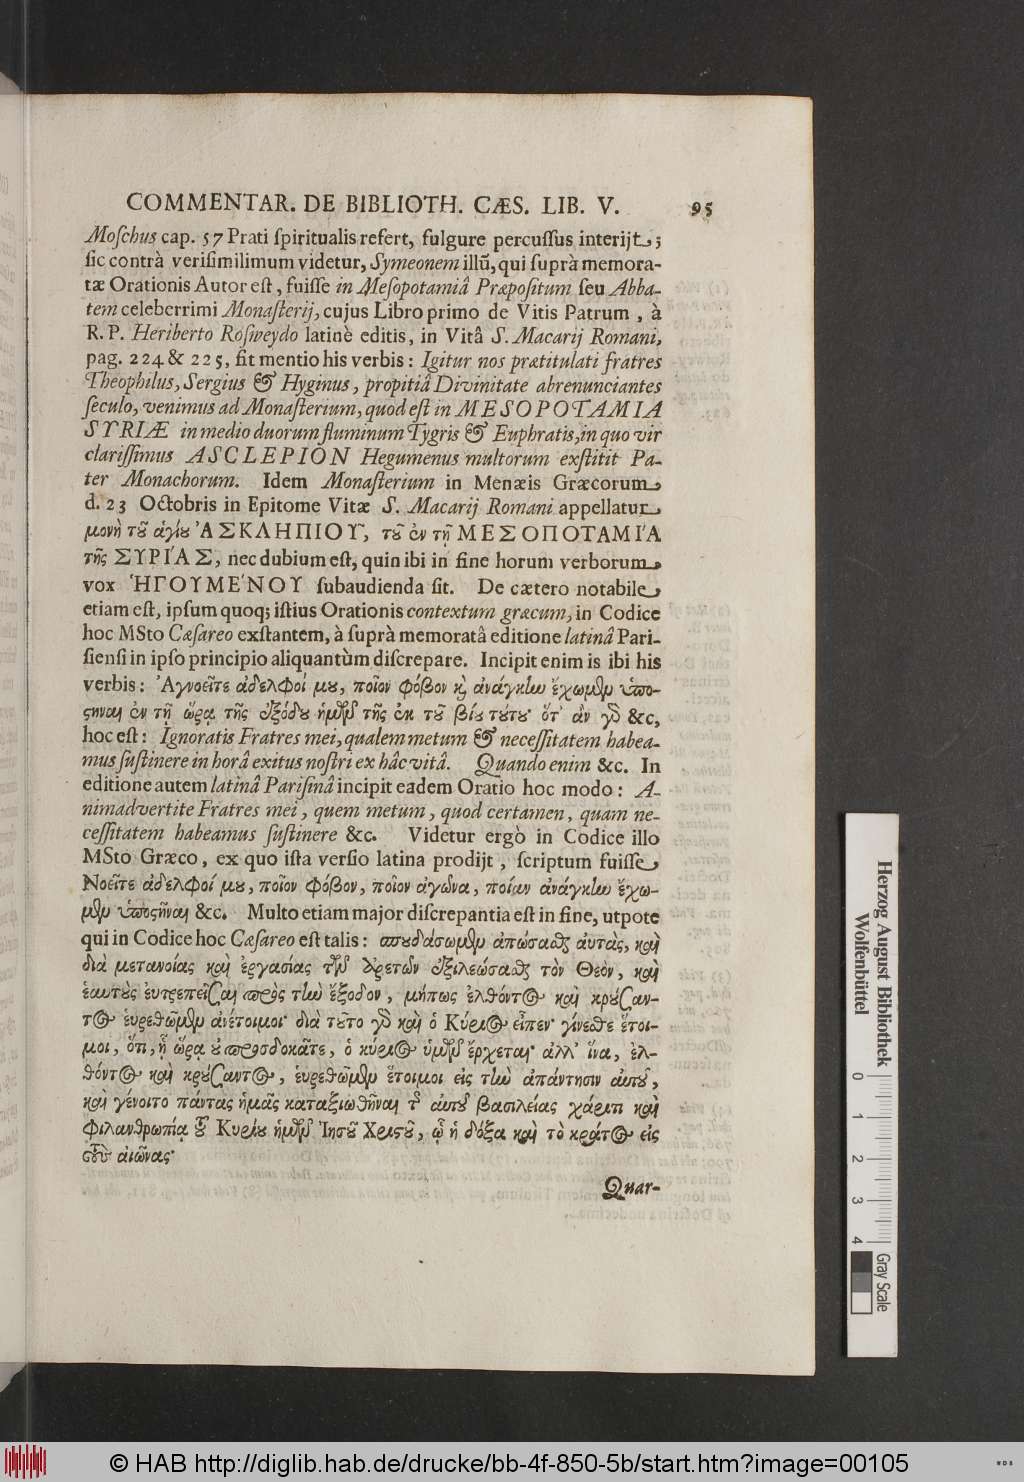 COMMENTAR. DE BIBLIOTH. CÆS. LIB. V. 95
Moſchus cap. 57 Prati ſpiritualis refert, fulgure percuſſus interijt;
ſic contrà veriſimilimum videtur, Symeonem illū, qui ſuprà memora-
tæ Orationis Autor eſt, fuiſſe in Meſopotamiâ Præpoſitum ſeu Abba-
tem celeberrimi Monaſterij, cujus Libro primo de Vitis Patrum, à
R. P. Heriberto Roſweydo latinè editis, in Vitâ S. Macarij Romani,
pag. 224 & 225, fit mentio his verbis: Igitur nos prætitulati fratres
Theophilus, Sergius & Hyginus, propitiâ Divinitate abrenunciantes
ſeculo, venimus ad Monaſterium, quod eſt in MESOPOTAMIA
SYRIÆ in medio duorum fluminum Tygris & Euphratis, in quo vir
clariſſimus ASCLEPION Hegumenus multorum exſtitit Pa-
ter Monachorum. Idem Monaſterium in Menæis Græcorum,
d. 23 Octobris in Epitome Vitæ S. Macarij Romani appellatur,
μονὴ τȣ͂ ἁγίȣ ἈΣΚΛΗΠΙΟΥ͂, τȣ͂ ἐν τῇ ΜΕΣΟΠΟΤΑΜΊΑ
τῆς ΣΥΡΊΑΣ, nec dubium eſt, quin ibi in fine horum verborum,
vox ἩΓΟΥΜΕΝΟΥ ſubaudienda ſit. De cætero notabile,
etiam eſt, ipſum quoq; iſtius Orationis contextum græcum, in Codice
hoc MSto Cæſareo exſtantem, à ſuprà memoratâ editione latinâ Pari-
ſienſi in ipſo principio aliquantùm diſcrepare. Incipit enim is ibi his
verbis: Ἀγνοεῖτε ἀδελφοί μȣ, ποῖον φόβον κὶ ἀνάγκην ἔχωμεν ὑπο-
ϛῆναι ἐν τῇ ὥρᾳ τῆς ἐξόδȣ ἡμῶν τῆς ἐκ τȣ͂ βίȣ τȣ́τȣ· ὅτ᾽ ἂν γὸ &c,
hoc eſt: Ignoratis Fratres mei, qualem metum & neceſſitatem habea-
mus ſuſtinere in horâ exitus noſtri ex hâc vitâ. Quando enim &c. In
editione autem latinâ Pariſinâ incipit eadem Oratio hoc modo: A-
nimadvertite Fratres mei, quem metum, quod certamen, quam ne-
ceſſitatem habeamus ſuſtinere &c. Videtur ergò in Codice illo
MSto Græco, ex quo iſta verſio latina prodijt, ſcriptum fuiſſe,
Νοεῖτε ἀδελφοί μȣ, ποῖον φόβον, ποῖον ἀγῶνα, ποίαν ἀνάγκην ἔχω-
μεν ὑποϛῆναι &c. Multo etiam major diſcrepantia eſt in fine, utpote
qui in Codice hoc Cæſareo eſt talis: σπȣδάσωμεν ἀπώσαϑαι ἀυτὰς, καὶ
διὰ μετανοίας καὶ ἐργασίας τῶν ἀρετῶν ἐξιλεώσαϑαι τὸν Θεὸν, καὶ
ἑαυτȣ̀ς ἐυτρεπεῖσαι πρὸς τὴν ἔξοδον, μήπως ἐλθόντος καὶ κρȣ́σαν-
τος ἑυρεθῶμεν ἀνέτοιμοι· διὰ τȣ͂το γὸ καὶ ὁ Κύριος εἶπεν· γίνεϑε ἕτοι-
μοι, ὅτι, ᾗ ὥρᾳ ȣ̓ προσδοκᾶτε, ὁ κύριος ὑμῶν ἔρχεται· ἀλλ᾽ ἵνα, ἐλ-
θόντος καὶ κρȣ́σαντος, ἑυρεθῶμεν ἕτοιμοι εἰς τὴν ἀπάντησιν ἀυτȣ͂,
καὶ γένοιτο πάντας ἡμᾶς καταξιωθῆναι τῆς ἀυτȣ͂ βασιλείας χάριτι καὶ
φιλανθρωπίᾳ τȣ͂ Κυρίȣ ἡμῶν Ἰησȣ͂ Χριϛȣ͂, ᾧ ἡ δόξα καὶ τὸ κράτος εἰς
τȣ̀ς ἀιῶνας·
Quar-
Herzog August Bibliothek
Wolfenbüttel
0 1 2 3 4
Gray Scale
© HAB http://diglib.hab.de/drucke/bb-4f-850-5b/start.htm?image=00105